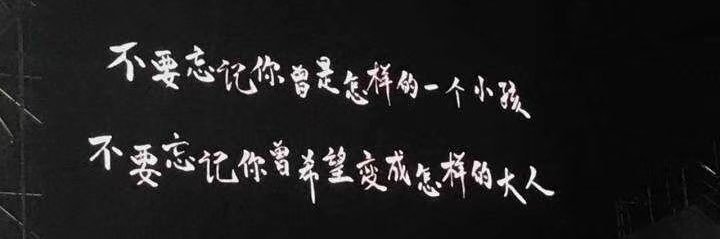 不要忘记你曾是怎样的一个小孩
不要忘记你曾希望变成怎样的大人